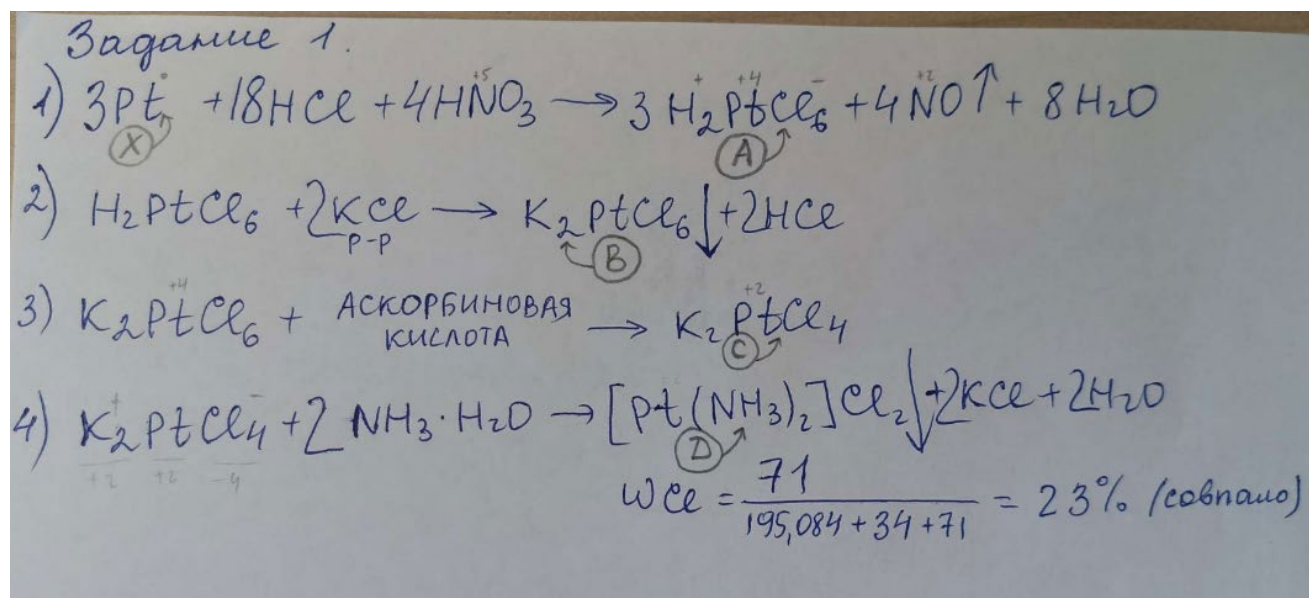 Задание 1.
1) 3Pt⁰ + 18HCl + 4HN⁺⁵O₃ → 3 H₂⁺Pt⁺⁴Cl₆⁻ + 4N⁺²O↑ + 8H₂O
X A
2) H₂PtCl₆ + 2KCl → K₂PtCl₆↓ + 2HCl
р-р B
3) K₂Pt⁺⁴Cl₆ + АСКОРБИНОВАЯ КИСЛОТА → K₂Pt⁺²Cl₄
C
4) K₂⁺PtCl₄⁻ + 2 NH₃·H₂O → [Pt(NH₃)₂]Cl₂↓ + 2KCl + 2H₂O
+2 +2 -4 D
WCl = 71 / 195,084 + 34 + 71 = 23% (совпало)